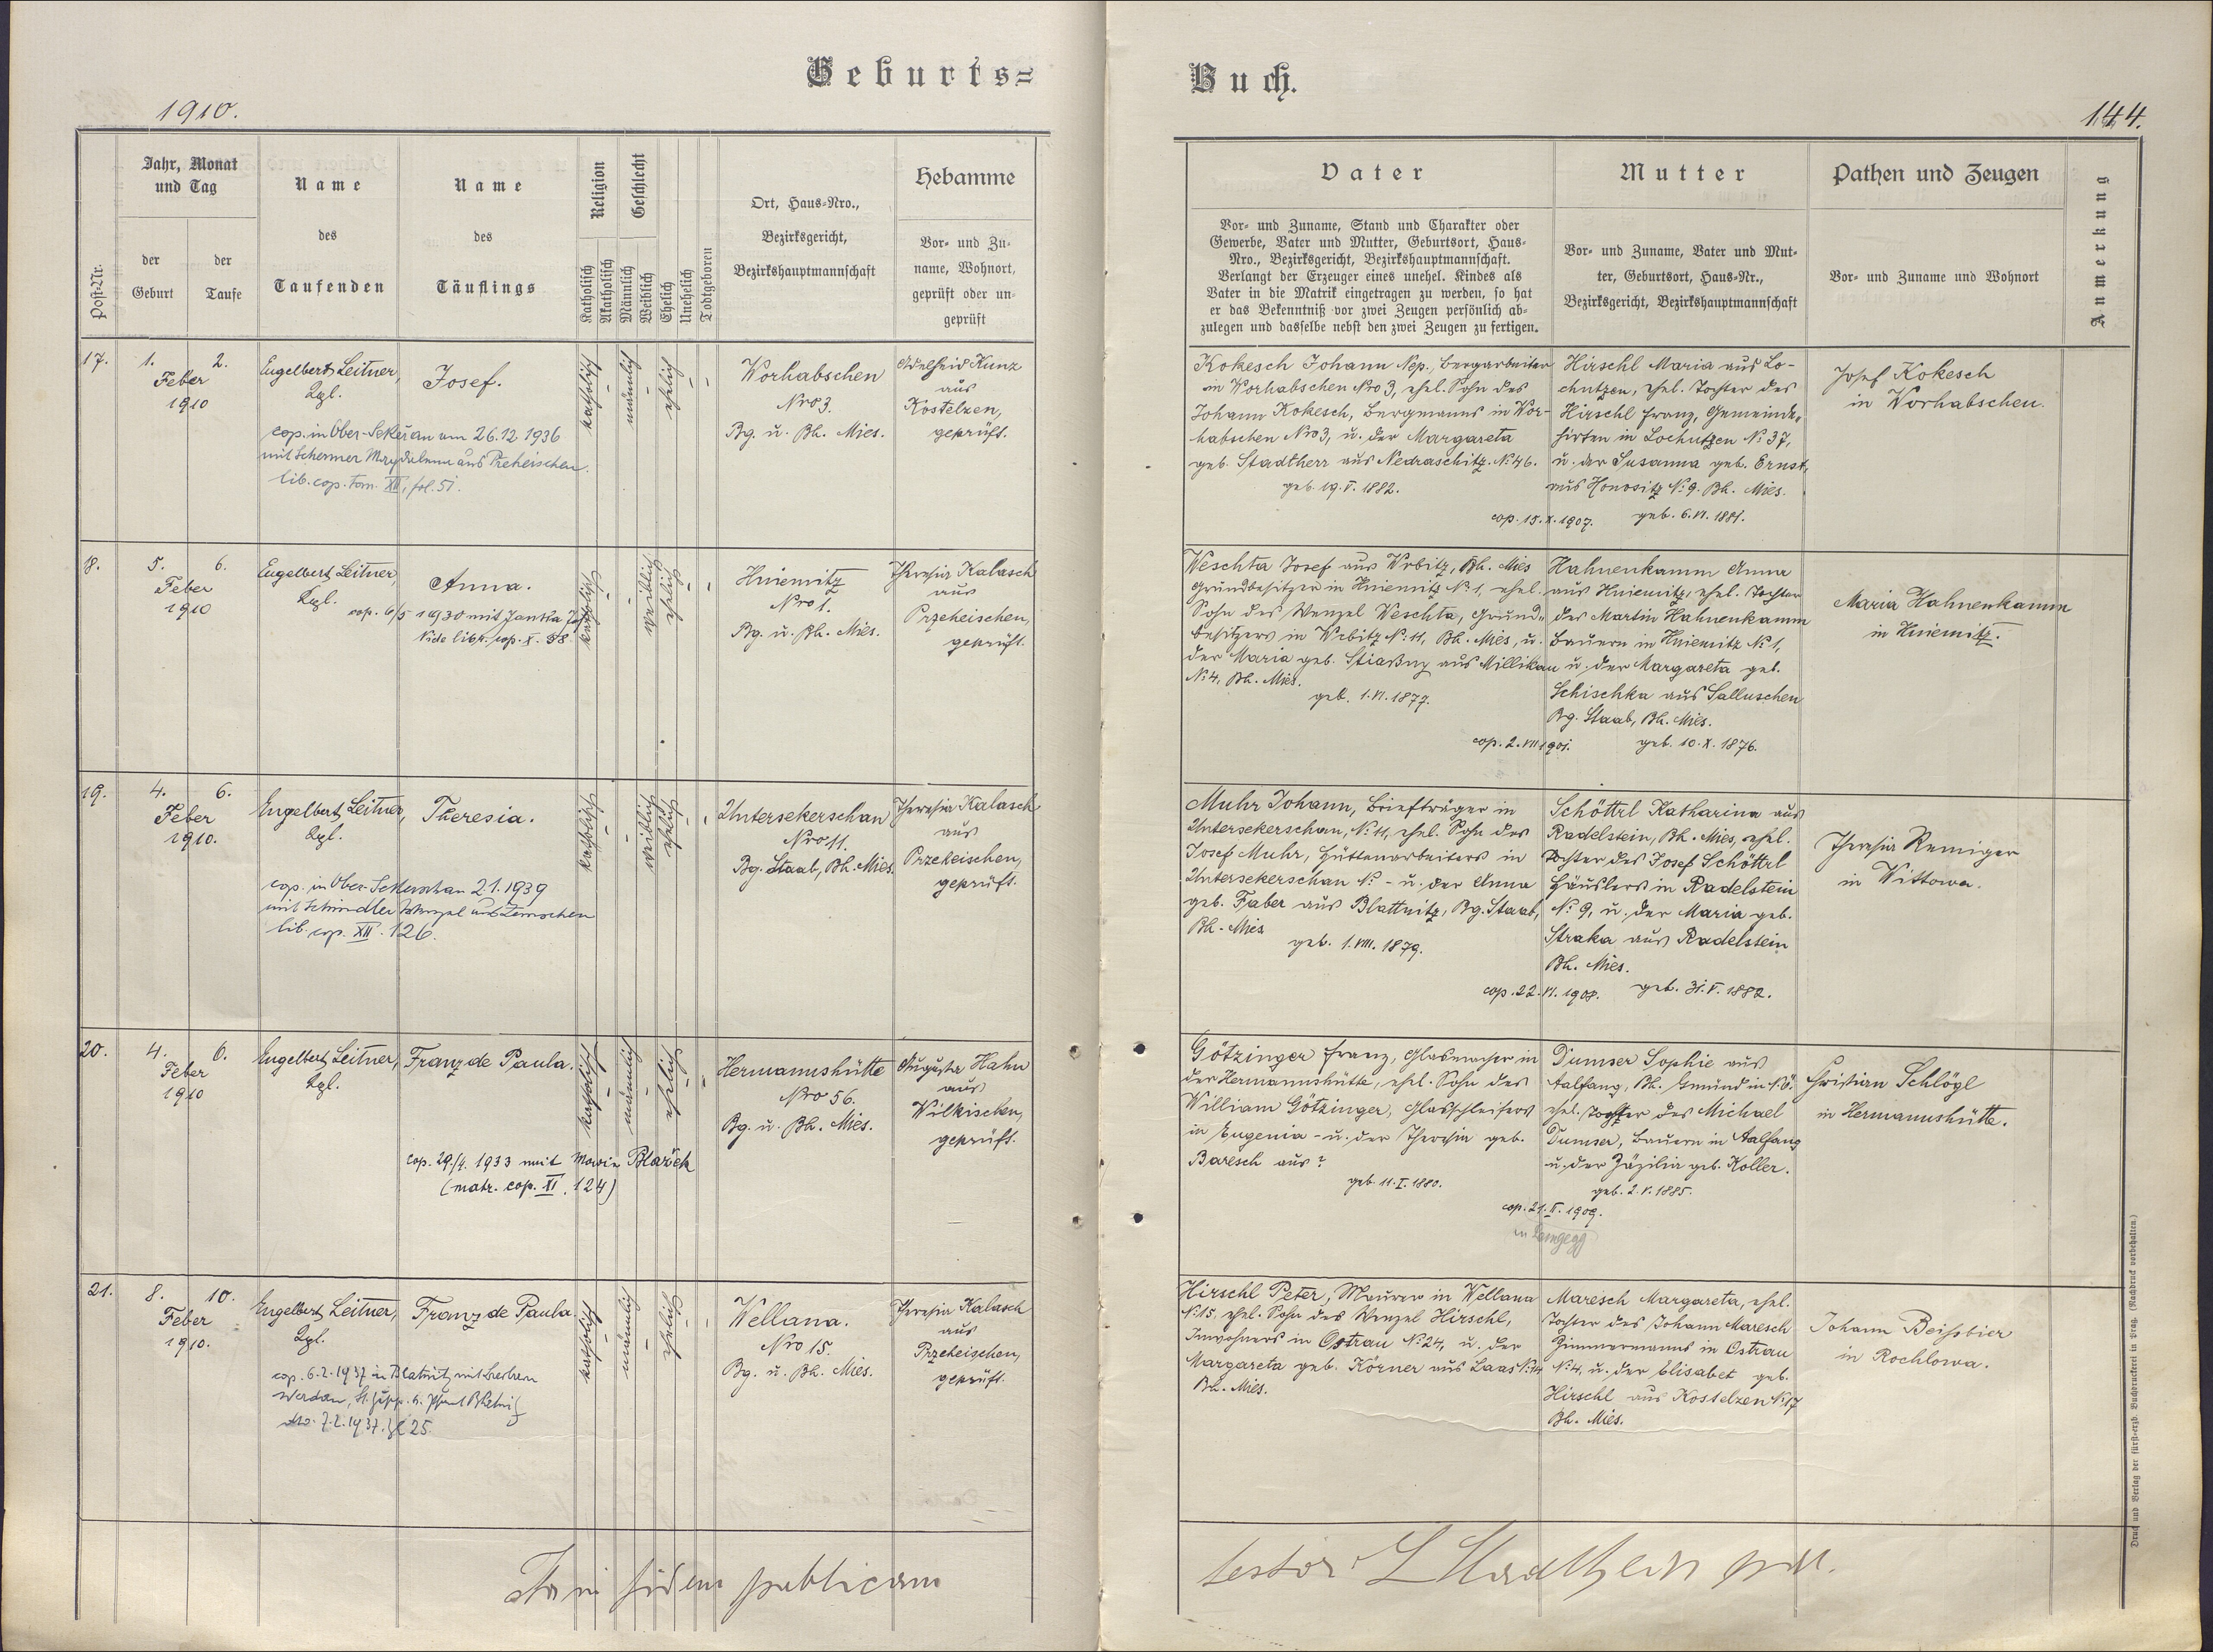 Geburts=
Buch.
1910.
144.
Post-Nr.
Jahr, Monat
und Tag
der
Geburt
der
Taufe
Name
des
Taufenden
Name
des
Täuflings
Religion
Katholisch
Akatholisch
Geschlecht
Männlich
Weiblich
Ehelich
Unehelich
Todtgeboren
Ort, Haus-Nro.,
Bezirksgericht,
Bezirkshauptmannschaft
Hebamme
Vor- und Zu-
name, Wohnort,
geprüft oder un-
geprüft
Vater
Vor- und Zuname, Stand und Charakter oder
Gewerbe, Vater und Mutter, Geburtsort, Haus-
Nro., Bezirksgericht, Bezirkshauptmannschaft.
Verlangt der Erzeuger eines unehel. Kindes als
Vater in die Matrik eingetragen zu werden, so hat
er das Bekenntniß vor zwei Zeugen persönlich ab-
zulegen und dasselbe nebst den zwei Zeugen zu fertigen.
Mutter
Vor- und Zuname, Vater und Mut-
ter, Geburtsort, Haus-Nr.,
Bezirksgericht, Bezirkshauptmannschaft
Pathen und Zeugen
Vor- und Zuname und Wohnort
Anmerkung
17.
1. 2.
Feber
1910
Engelbert Leitner,
Lgl.
Josef.
cop. in Ober-Sekeřan am 26.12 1936
mit Schermer Magdalena aus Preheischen.
lib. cop. Tom. XII, fol. 51.
katholisch
männlich
ehelich
Worhabschen
Nro 3.
Bg. u. Bh. Mies.
Adelheid Kunz
aus
Kostelzen,
geprüft.
Kokesch Johann Nep., Bergarbeiter
in Worhabschen Nro 3, ehel. Sohn des
Johann Kokesch, Bergmanns in Wor-
habschen Nro 3, u. der Margareta
geb. Stadtherr aus Nedraschitz. No 46.
geb. 19. V. 1882.
Hirschl Maria aus Lo-
chutzen, ehel. Tochter des
Hirschl Franz, Gemeinde-
hirten in Lochutzen No 37,
u. der Susanna geb. Ernst,
aus Honositz No 9. Bh. Mies.
cop. 15. X. 1907. geb. 6. VI. 1881.
Josef Kokesch
in Worhabschen.
18.
5. 6.
Feber
1910
Engelbert Leitner,
Lgl.
Anna.
cop. 6/5 1930 mit Janska
Vide libr. cop. X. 38
katholisch
weiblich
ehelich
Hniemitz
Nro 1.
Bg. u. Bh. Mies.
Theresia Kalasch
aus
Przeheischen,
geprüft.
Weschta Josef aus Wrbitz, Bh. Mies
Grundbesitzer in Hniemitz No 1, ehel.
Sohn des Wenzel Weschta, Grund-
besitzers in Wrbitz No 11, Bh. Mies, u.
der Maria geb. Stiaßny aus Millikau
No 4, Bh. Mies.
geb. 1. VI. 1877.
Hahnenkamm Anna
aus Hniemitz, ehel. Tochter
des Martin Hahnenkamm
Bauern in Hniemitz No 1,
u. der Margareta geb.
Schischka aus Salluschen
Bg. Staab, Bh. Mies.
cop. 2. VII 1901. geb. 10. X. 1876.
Maria Hahnenkamm
in Hniemitz.
19.
4. 6.
Feber
1910.
Engelbert Leitner,
Lgl.
Theresia.
cop. in Ober-Sekerschan 21. 1939
mit Schindler Wenzel aus Zemschen
lib. cop. XII. 126.
katholisch
weiblich
ehelich
Untersekerschan
Nro 11.
Bg. Staab, Bh. Mies.
Theresia Kalasch
aus
Przeheischen,
geprüft.
Muhr Johann, Briefträger in
Untersekerschan, No 11, ehel. Sohn des
Josef Muhr, Hüttenarbeiters in
Untersekerschan No - u. der Anna
geb. Faber aus Blattnitz, Bg. Staab,
Bh. Mies
geb. 1. VIII. 1879.
Schöttrl Katharina aus
Radelstein, Bh. Mies, ehel.
Tochter des Josef Schöttrl
Häuslers in Radelstein
No 9, u. der Maria geb.
Straka aus Radelstein
Bh. Mies.
cop. 22. VI. 1908. geb. 31. V. 1882.
Theresia Remiger
in Wittowa.
20.
4. 6.
Feber
1910
Engelbert Leitner,
Lgl.
Franz de Paula.
cop. 29./4. 1933 mit Marie Blažek
(matr. cop. XI, 124)
katholisch
männlich
ehelich
Hermannshütte
Nro 56.
Bg. u. Bh. Mies.
Augusta Hahn
aus
Wilkischen,
geprüft.
Götzinger Franz, Glasmacher in
der Hermannshütte, ehel. Sohn des
William Götzinger, Glasschleifers
in Eugenia - u. der Theresia geb.
Baresch aus ?
geb. 11. I. 1880.
Dumser Sophie aus
Aalfang, Bh. Gmünd in N.Ö.
ehel. Tochter des Michael
Dumser, Bauern in Aalfang
u. der Zäzilia geb. Koller.
geb. 2. V. 1885.
cop. 21. II. 1909.
in Langegg
Christian Schlögl
in Hermannshütte.
21.
8. 10.
Feber
1910.
Engelbert Leitner,
Lgl.
Franz de Paula.
cop. 6.2.1937 in Blatnitz mit
7.2.1937. Zl 25.
katholisch
männlich
ehelich
Wellana.
Nro 15.
Bg. u. Bh. Mies.
Theresia Kalasch
aus
Przeheischen,
geprüft.
Hirschl Peter, Maurer in Wellana
No 15, ehel. Sohn des Wenzel Hirschl,
Inwohners in Ostrau No 24, u. der
Margareta geb. Körner aus Laas No 14
Bh. Mies.
Maresch Margareta, ehel.
Tochter des Johann Maresch
Zimmermanns in Ostrau
No 4, u. der Elisabet geb.
Hirschl aus Kostelzen No 17
Bh. Mies.
Johann Beißbier
in Rochlowa.
fidem publicam
testor
Druck und Verlag der fürst-erzb. Buchdruckerei in Prag. (Nachdruck vorbehalten.)